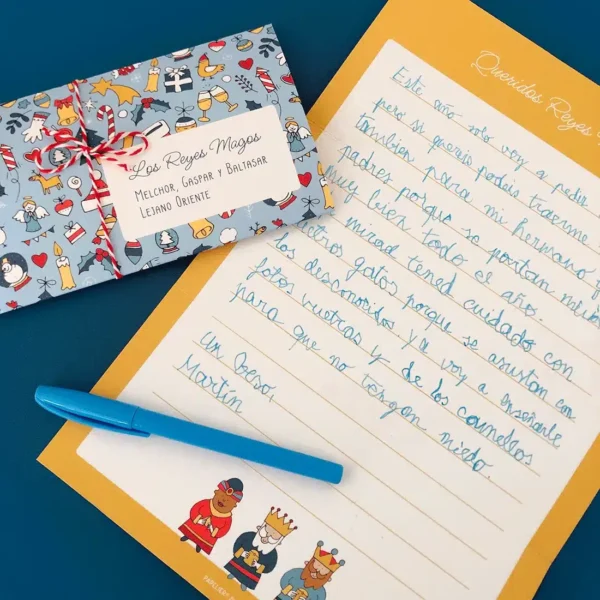 Los Reyes Magos
MELCHOR, GASPAR Y BALTASAR
LEJANO ORIENTE
Queridos Reyes
Este año solo voy a pedir
pero si quereis podeis traerme
tambien para mi hermano y
padres porque se portan
muy bien todo el año.
gatos porque se asustan con
mirad tened cuidado con
los desconocidos y a voy a enseñarle
fotos vuetras y de los camellos
para que no tengan miedo.
un beso,
Martín